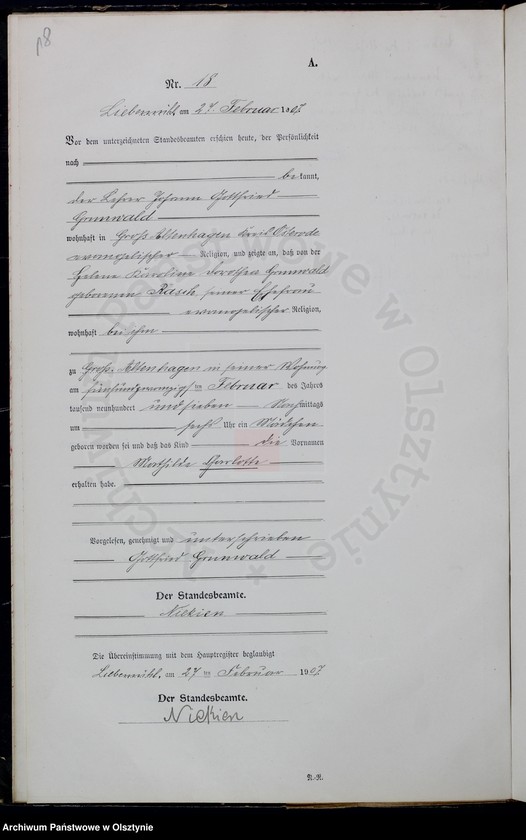 18
A.
Nr. 18
am 27. Februar 1907.
Vor dem unterzeichneten Standesbeamten erschien heute, der Persönlichkeit
nach
bekannt,
der Lehrer Johann Gottfried
Grunwald
wohnhaft in Groß Altenhagen Kreis Osterode
evangelischer Religion, und zeigte an, daß von der
Helene Karoline Dorothea Grunwald
geborenen Rasch seiner Ehefrau
evangelischer Religion,
wohnhaft bei ihm
zu Groß Altenhagen in seiner Wohnung
am fünfundzwanzigsten Februar des Jahres
tausend neunhundert und sieben Nachmittags
um sechs Uhr ein Mädchen
geboren worden sei und daß das Kind die Vornamen
Charlotte
erhalten habe.
Vorgelesen, genehmigt und unterschrieben
Gottfried Grunwald
Der Standesbeamte.
Niekien
Die Übereinstimmung mit dem Hauptregister beglaubigt
am 27 ten Februar 1907.
Der Standesbeamte.
Niekien
N.-R.
Archiwum Państwowe w Olsztynie
Archiwum Państwowe w Olsztynie *